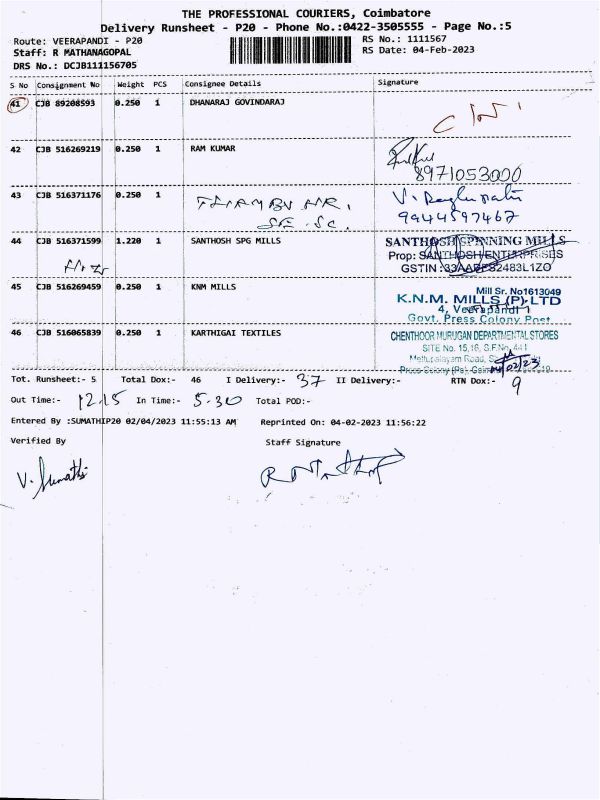 THE PROFESSIONAL COURIERS, Coimbatore
Delivery Runsheet - P20 - Phone No.:0422-3505555 - Page No.:5
Route: VEERAPANDI - P20 RS No.: 1111567
Staff: R MATHANAGOPAL RS Date: 04-Feb-2023
DRS No.: DCJB111156705
S No Consignment No Weight PCS Consignee Details Signature
41 CJB 89208593 0.250 1 DHANARAJ GOVINDARAJ
42 CJB 516269219 0.250 1 RAM KUMAR
8971053000
43 CJB 516371176 0.250 1 V. Raghupathi
9944597467
44 CJB 516371599 1.220 1 SANTHOSH SPG MILLS SANTHOSH SPINNING MILLS
Prop: SANTHOSH ENTERPRISES
GSTIN :33AABFS2483L1ZO
45 CJB 516269459 0.250 1 KNM MILLS Mill Sr. No1613049
K.N.M. MILLS (P) LTD
4, Veerapandi
Govt. Press Colony Post
46 CJB 516065839 0.250 1 KARTHIGAI TEXTILES CHENTHOOR MURUGAN DEPARTMENTAL STORES
SITE No. 15,16, S.F.No. 441
Mettupalayam Road,
Press Colony (Po),
Tot. Runsheet:- 5 Total Dox:- 46 I Delivery:- 37 II Delivery:- RTN Dox:- 9
Out Time:- 12.15 In Time:- 5.30 Total POD:-
Entered By :SUMATHIP20 02/04/2023 11:55:13 AM Reprinted On: 04-02-2023 11:56:22
Verified By Staff Signature
V. Sumathi